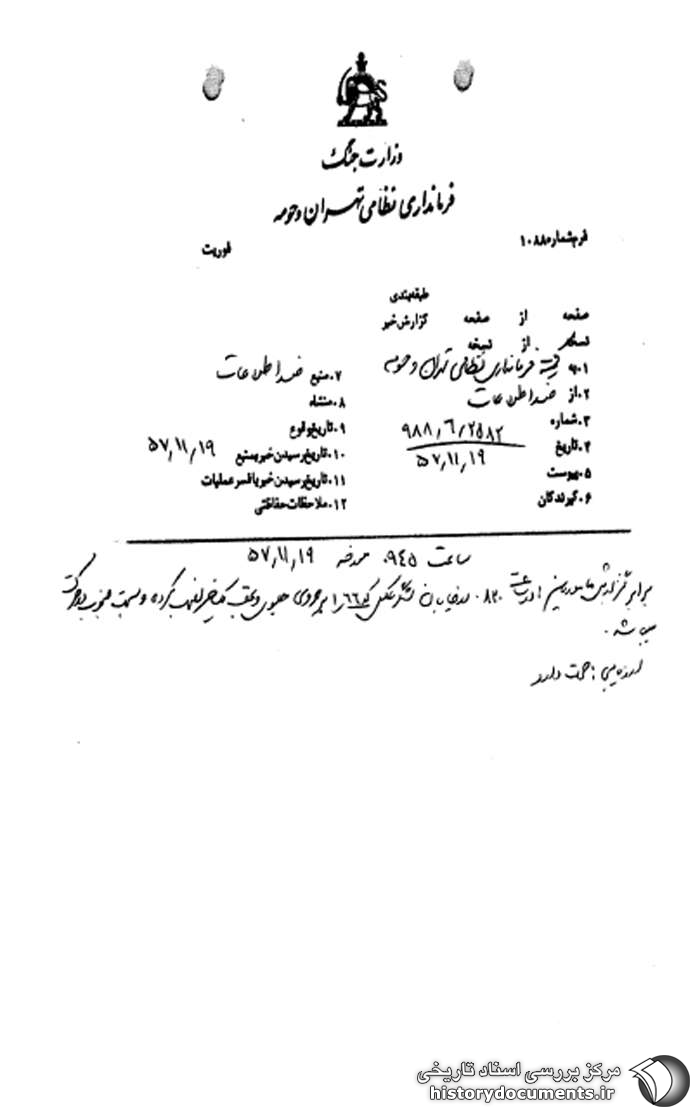 وزارت جنگ
فرمانداری نظامی تهران و حومه
فرم شماره ۱۰۸۸
فوریت
طبقه‌بندی
صفحه از صفحه گزارش خبر
نسخه از نسخه
۱.به فرمانداری نظامی تهران و حومه
۲.از ضد اطلاعات
۳.شماره ۹۸۸/۶/۲۵۸۲
۴.تاریخ ۵۷/۱۱/۱۹
۵.پیوست
۶.گیرندگان
۷.منبع ضد اطلاعات
۸.منشاء
۹.تاریخ وقوع
۱۰.تاریخ رسیدن خبر به منبع ۵۷/۱۱/۱۹
۱۱.تاریخ رسیدن خبر به افسر عملیات
۱۲.ملاحظات حفاظتی
ساعت ۰۹۴۵ مورخه ۵۷/۱۱/۱۹
برابر گزارش مامورین : در ساعت ۰۸۲۰ در خیابان عکس را جلوی و عقب نصب کرده و بسمت جنوب در حرکت
میباشد.
ارزیابی : صحت دارد
مرکز بررسی اسناد تاریخی
historydocuments.ir